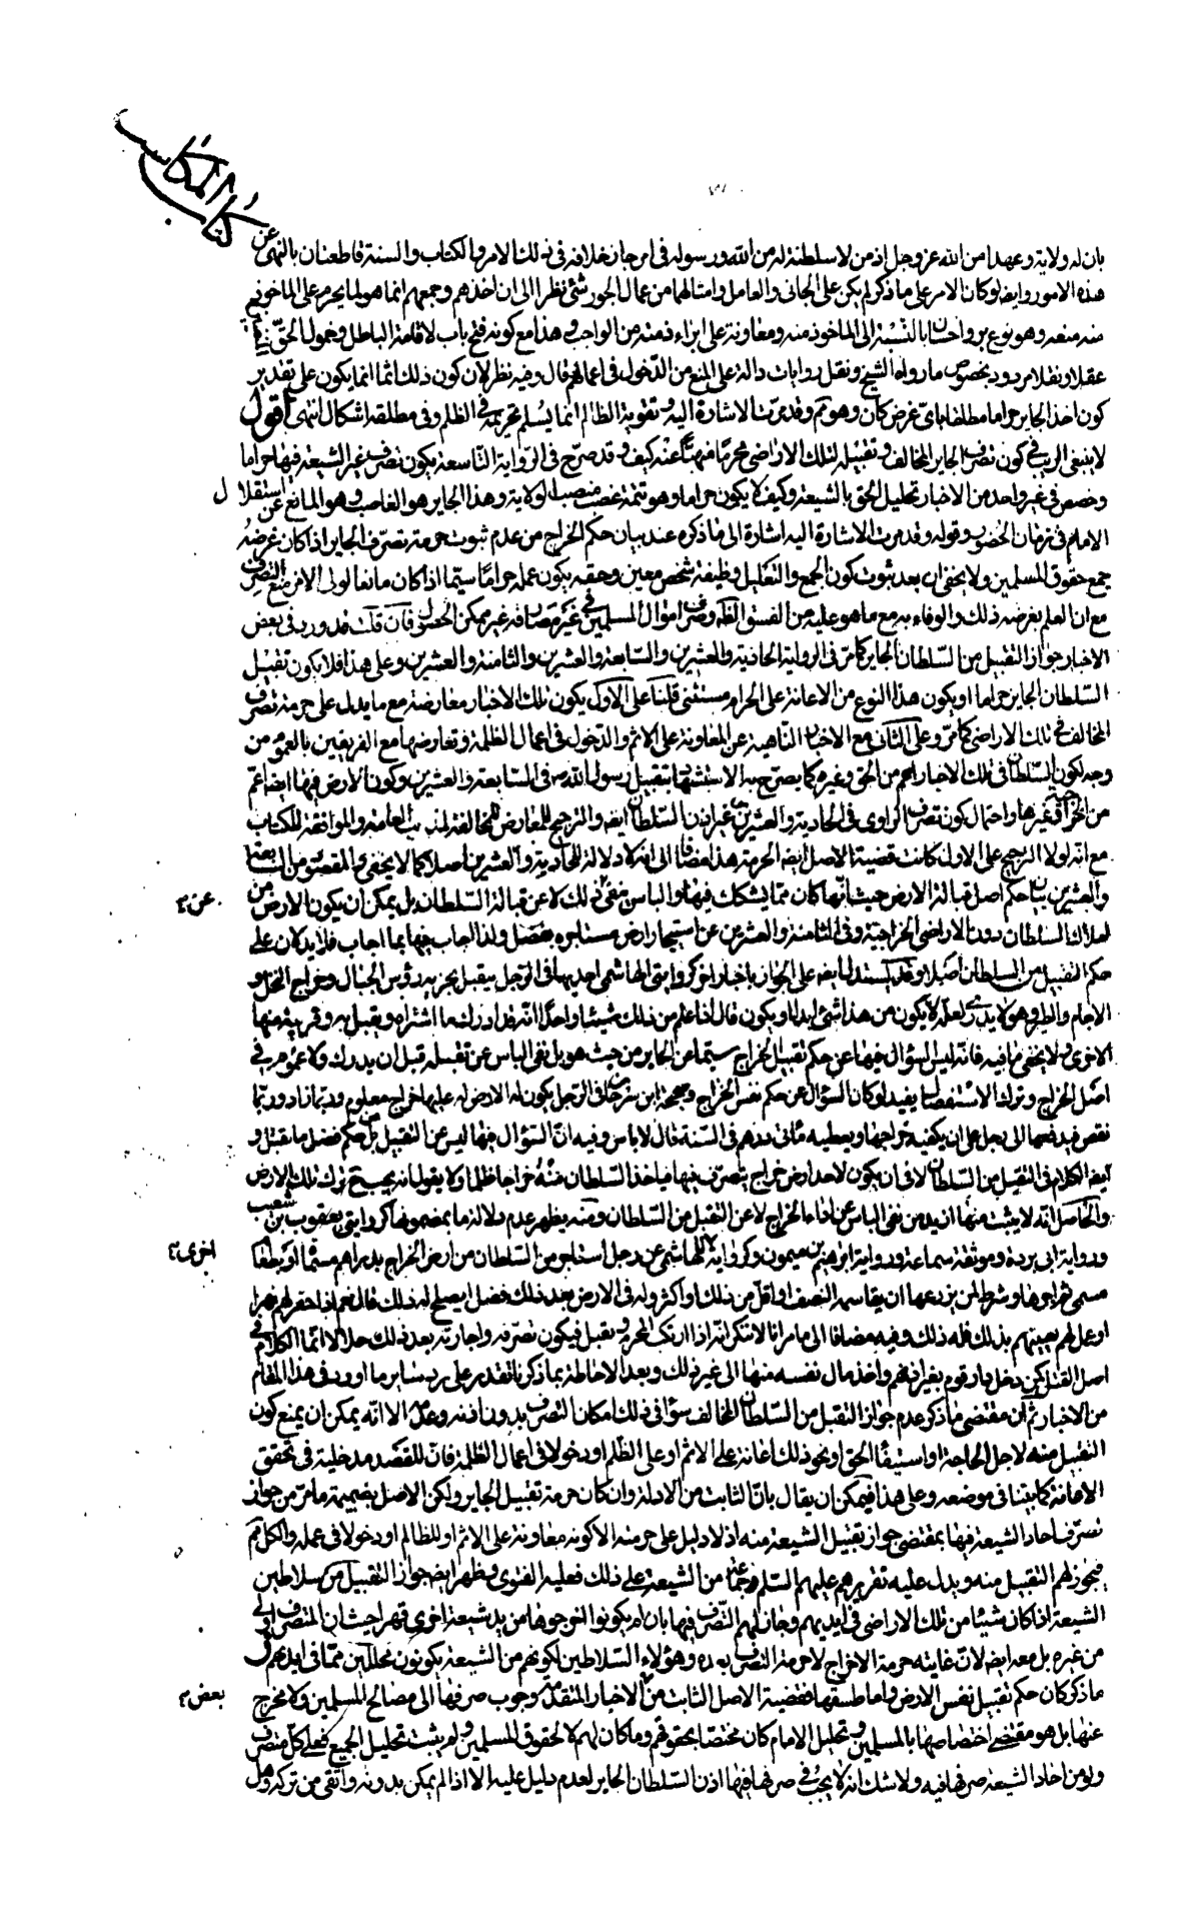 كتاب المكاسب
بان له ولاية وعهدا من الله عز وجل اذ من لا سلطنة له من الله ورسوله في امر جاز خلافه في ذلك الامر والكتاب والسنة قاطعتان بالنهي عن
هذه الامور وايضا لو كان الامر على ما ذكر لم يكن على الجاني والعامل وامثالهما من عمال الجور شئ نظرا الى ان اخذهم وجمعهم انما هو لما يحرم على الماخوذ
منه منعه وهو نوع بر واحسان بالنسبة الى الماخوذ منه ومعاونة على ابراء ذمته من الواجب وهذا مع كونه فتح باب لاقامة الباطل وخمول الحق
عقلا ونقلا مردود بخصوص ما رواه الشيخ ونقل روايات دالة على المنع من الدخول في اعمالهم قال وفيه نظر لان كون ذلك اثما انما يكون على تقدير
كون اخذ الجاير حراما مطلقا باى غرض كان وهو مم وقد مرت الاشارة اليه وتقوية الظالم انما يسلم تحريمه في الظلم وفي مطلقه اشكال انتهى اقول
لا ينبغي الريب في كون تصرف الجاير المخالف وتقبيله لتلك الاراضي محرما منهيا عنه كيف وقد صرح في الرواية التاسعة بكون تصرف غير الشيعة فيها حراما
وخصص في غير واحد من الاخبار تحليل الحق بالشيعة وكيف لا يكون حراما وهو تتمة غصب منصب الولاية وهذا الجاير هو الغاصب وهو المانع عن استقلال
الامام في زمان الحضور وقوله وقد مرت الاشارة اليه اشارة الى ما ذكره عند بيان حكم الخراج من عدم ثبوت حرمة تصرف الجاير اذا كان غرضه
جمع حقوق المسلمين ولا يخفى ان بعد ثبوت كون الجمع والتقبيل وظيفة شخص معين وحقه يكون عمله حراما سيما اذا كان مانعا لولى الامر عن التصرف
مع ان العلم بغرضه ذلك والوفاء به مع ما هو عليه من الفسق الظ وصرف اموال المسلمين في غير مصارفه غير ممكن الحصول فان قلت قد ورد في بعض
الاخبار جواز التقبيل من السلطان الجاير كما مر في الرواية الحادية والعشرين والسابعة والعشرين والثامنة والعشرين وعلى هذا فلا يكون تقبيل
السلطان الجاير حراما او يكون هذا النوع من الاعانة على الحرام مستثنى قلنا على الاول يكون تلك الاخبار معارضة مع ما يدل على حرمة تصرف
المخالف في تلك الاراضي كما مر وعلى الثاني مع الاخبار الناهية عن المعاونة على الاثم والدخول في اعمال الظلمة وتعارضها مع الفريقين بالعموم من
وجه لكون السلطان في تلك الاخبار اعم من الحق وغيره كما يصرح به الاستشهاد بتقبيل رسول الله ص في السابعة والعشرين وكون الارض فيها ايضا اعم
من الخراجية وغيرها واحتمال كون تصرف الراوى في الحادية والعشرين بغير اذن السلطان ايضا والترجيح للمعارض للمخالفة لمذهب العامة والموافقة للكتاب
مع انه لولا الترجيح على الاول كانت قضية الاصل ايضا الحرمة هذا مضافا الى انه لا دلالة للحادية والعشرين اصلا كما لا يخفى والمقصود من السابعة
والعشرين بيان حكم اصل قبالة الارض حيث انها كان مما يشكك فيها والباس منفى لذلك لا عن قبالة السلطان بل يمكن ان يكون الارض من
املاك السلطان دون الاراضي الخراجية وفي الثامنة والعشرين عن استيجار ارض مستاجره بفضل ولذا اجاب فيها بما اجاب فلا يدلان على
حكم التقبيل من السلطان اصلا وقد يستدل ايضا على الجواز باخبار اخر كروايتي الهاشمى احديهما في الرجل يتقبل بجزية رؤس الجبال وخراج النخل و
الاجام والطير وهو لا يدرى لعله لا يكون من هذا شئ ابدا او يكون قال اذا علم من ذلك شيئا واحدا انه قد ادرك فاشتراه ويقبل به وقريبة منها
الاخرى ولا يخفى ما فيه فانه ليس السؤال فيها عن حكم تقبيل الخراج سيما عن الجاير من حيث هو بل نفى الباس عن تقبله قبل ان يدرك ولا عموم في
اصل الخراج وترك الاستفصال يفيد لو كان السؤال عن حكم نفس الخراج وصحيحة ابن سرحان في الرجل يكون له الارض له عليها خراج معلوم وربما زاد وربما
نقص فيدفعها الى رجل على ان يكفيه خراجها ويعطيه مائتي درهم في السنة قال لا باس وفيه ان السؤال فيها ليس عن التقبيل بل عن حكم فضل ما تقبل و
ايضا الكلام في التقبل من السلطان لا في ان يكون لاحد ارض خراج يتصرف فيها فياخذ السلطان منه خراجا ظلما ولا يقول انه يجب ح ترك تلك الارض
والحاصل انه لا يثبت منها ازيد من نفى الباس عن اداء الخراج لا عن التقبل من السلطان ومنه يظهر عدم دلالة ما بمضمونها كروايتي يعقوب بن شعيب
ورواية ابي بردة وموثقة سماعة ورواية ابراهيم بن ميمون وكرواية للهاشمى عن رجل استاجر من السلطان من ارض الخراج بدراهم مسماة او بطعام
مسمى ثم اجرها وشرط لمن يزرعها ان يقاسمه النصف او اقل من ذلك او اكثر وله في الارض بعد ذلك فضل ايصلح له ذلك قال نعم اذا حفر لهم نهرا
او عمل لهم يعينهم بذلك فله ذلك وفيه مضافا الى ما مر انا لا ننكر انه اذا ارتكب المحرم وتقبل فيكون تصرفه واجارته بعد ذلك حلالا انما الكلام في
اصل التقبل كمن دخل دار قوم بغير اذنهم واخذ مال نفسه منها الى غير ذلك وبعد الاحاطة بما ذكرنا تقدر على رد ساير ما اورد في هذا المقام
من الاخبار ثم ان مقتضى ما ذكر عدم جواز التقبل من السلطان المخالف سواء في ذلك امكان التصرف بدون اذنه وعدمه الا انه يمكن ان يمنع كون
التقبيل منه لاجل الحاجة او استيفاء الحق او نحو ذلك اعانة على الاثم او على الظلم او دخولا في اعمال الظلمة فان للقصد مدخلية في تحقق
الاعانة كما بينا في موضعه وعلى هذا فيمكن ان يقال بان الثابت من الادلة وان كان حرمة تقبيل الجاير ولكن الاصل بضميمة ما مر من جواز
تصرف احاد الشيعة فيها بمقتضى جواز تقبيل الشيعة منه اذ لا دليل على حرمته الا كونه معاونة على الاثم او للظالم او دخولا في عمله والكل مم
فيجوز لهم التقبيل منه ويدل عليه تقريرهم عليهم السلم جماعة من الشيعة على ذلك فعليه الفتوى ويظهر ايضا جواز التقبيل من سلاطين
الشيعة اذا كان شيئا من تلك الاراضي في ايديهم وجاز لهم التصرف فيها بان لم يكونوا اخرجوها من يد شيعة اخرى قهرا حيث ان المتصرف اولى
من غيره بل معه ايضا لان غايته حرمة الاخراج لا حرمة التصرف بعده وهؤلاء السلاطين لكونهم من الشيعة يكونون محللين مما في ايديهم ثم
ما ذكر كان حكم تقبيل نفس الارض واما طسقها فقضية الاصل الثابت من الاخبار المتقدمة وجوب صرفها الى مصالح المسلمين ولا مخرج
عنها بل هو مقتضى اختصاصها بالمسلمين وتحليل الامام كان مختصا بحقوقهم وما كان لهم لا لحقوق المسلمين ولم يثبت تحليل الجميع فعلى كل متصرف
ولو من احاد الشيعة صرفها فيه ولا شك انه لا يجب في صرفها فيها اذن السلطان الجاير لعدم دليل عليه الا اذا لم يمكن بدونه واتقى من تركه وهل
عن
اخرى
بعض